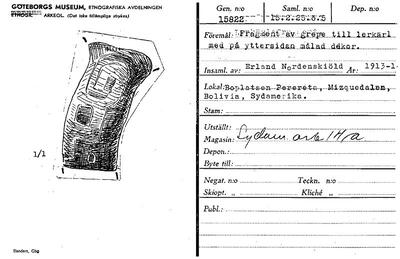 GÖTEBORGS MUSEUM, ETNOGRAFISKA AVDELNINGEN
ETNOGR. ARKEOL. (Det icke tillämpliga strykes)
1/1
Elanders, Gbg
Gen. n:o Saml. n:o Dep. n:o
15822
Föremål: Fragment av grepe till lerkärl
med på yttersidan målad dekor.
Insaml. av: Erland Nordenskiöld År: 1913-1
Lokal: Boplatsen Perereta, Mizquedalen,
Bolivia, Sydamerika.
Stam:
Utställt:
Magasin: Sydam
Depon.:
Byte till:
Negat. n:o Teckn. n:o
Skiopt. » Kliché »
Publ.: